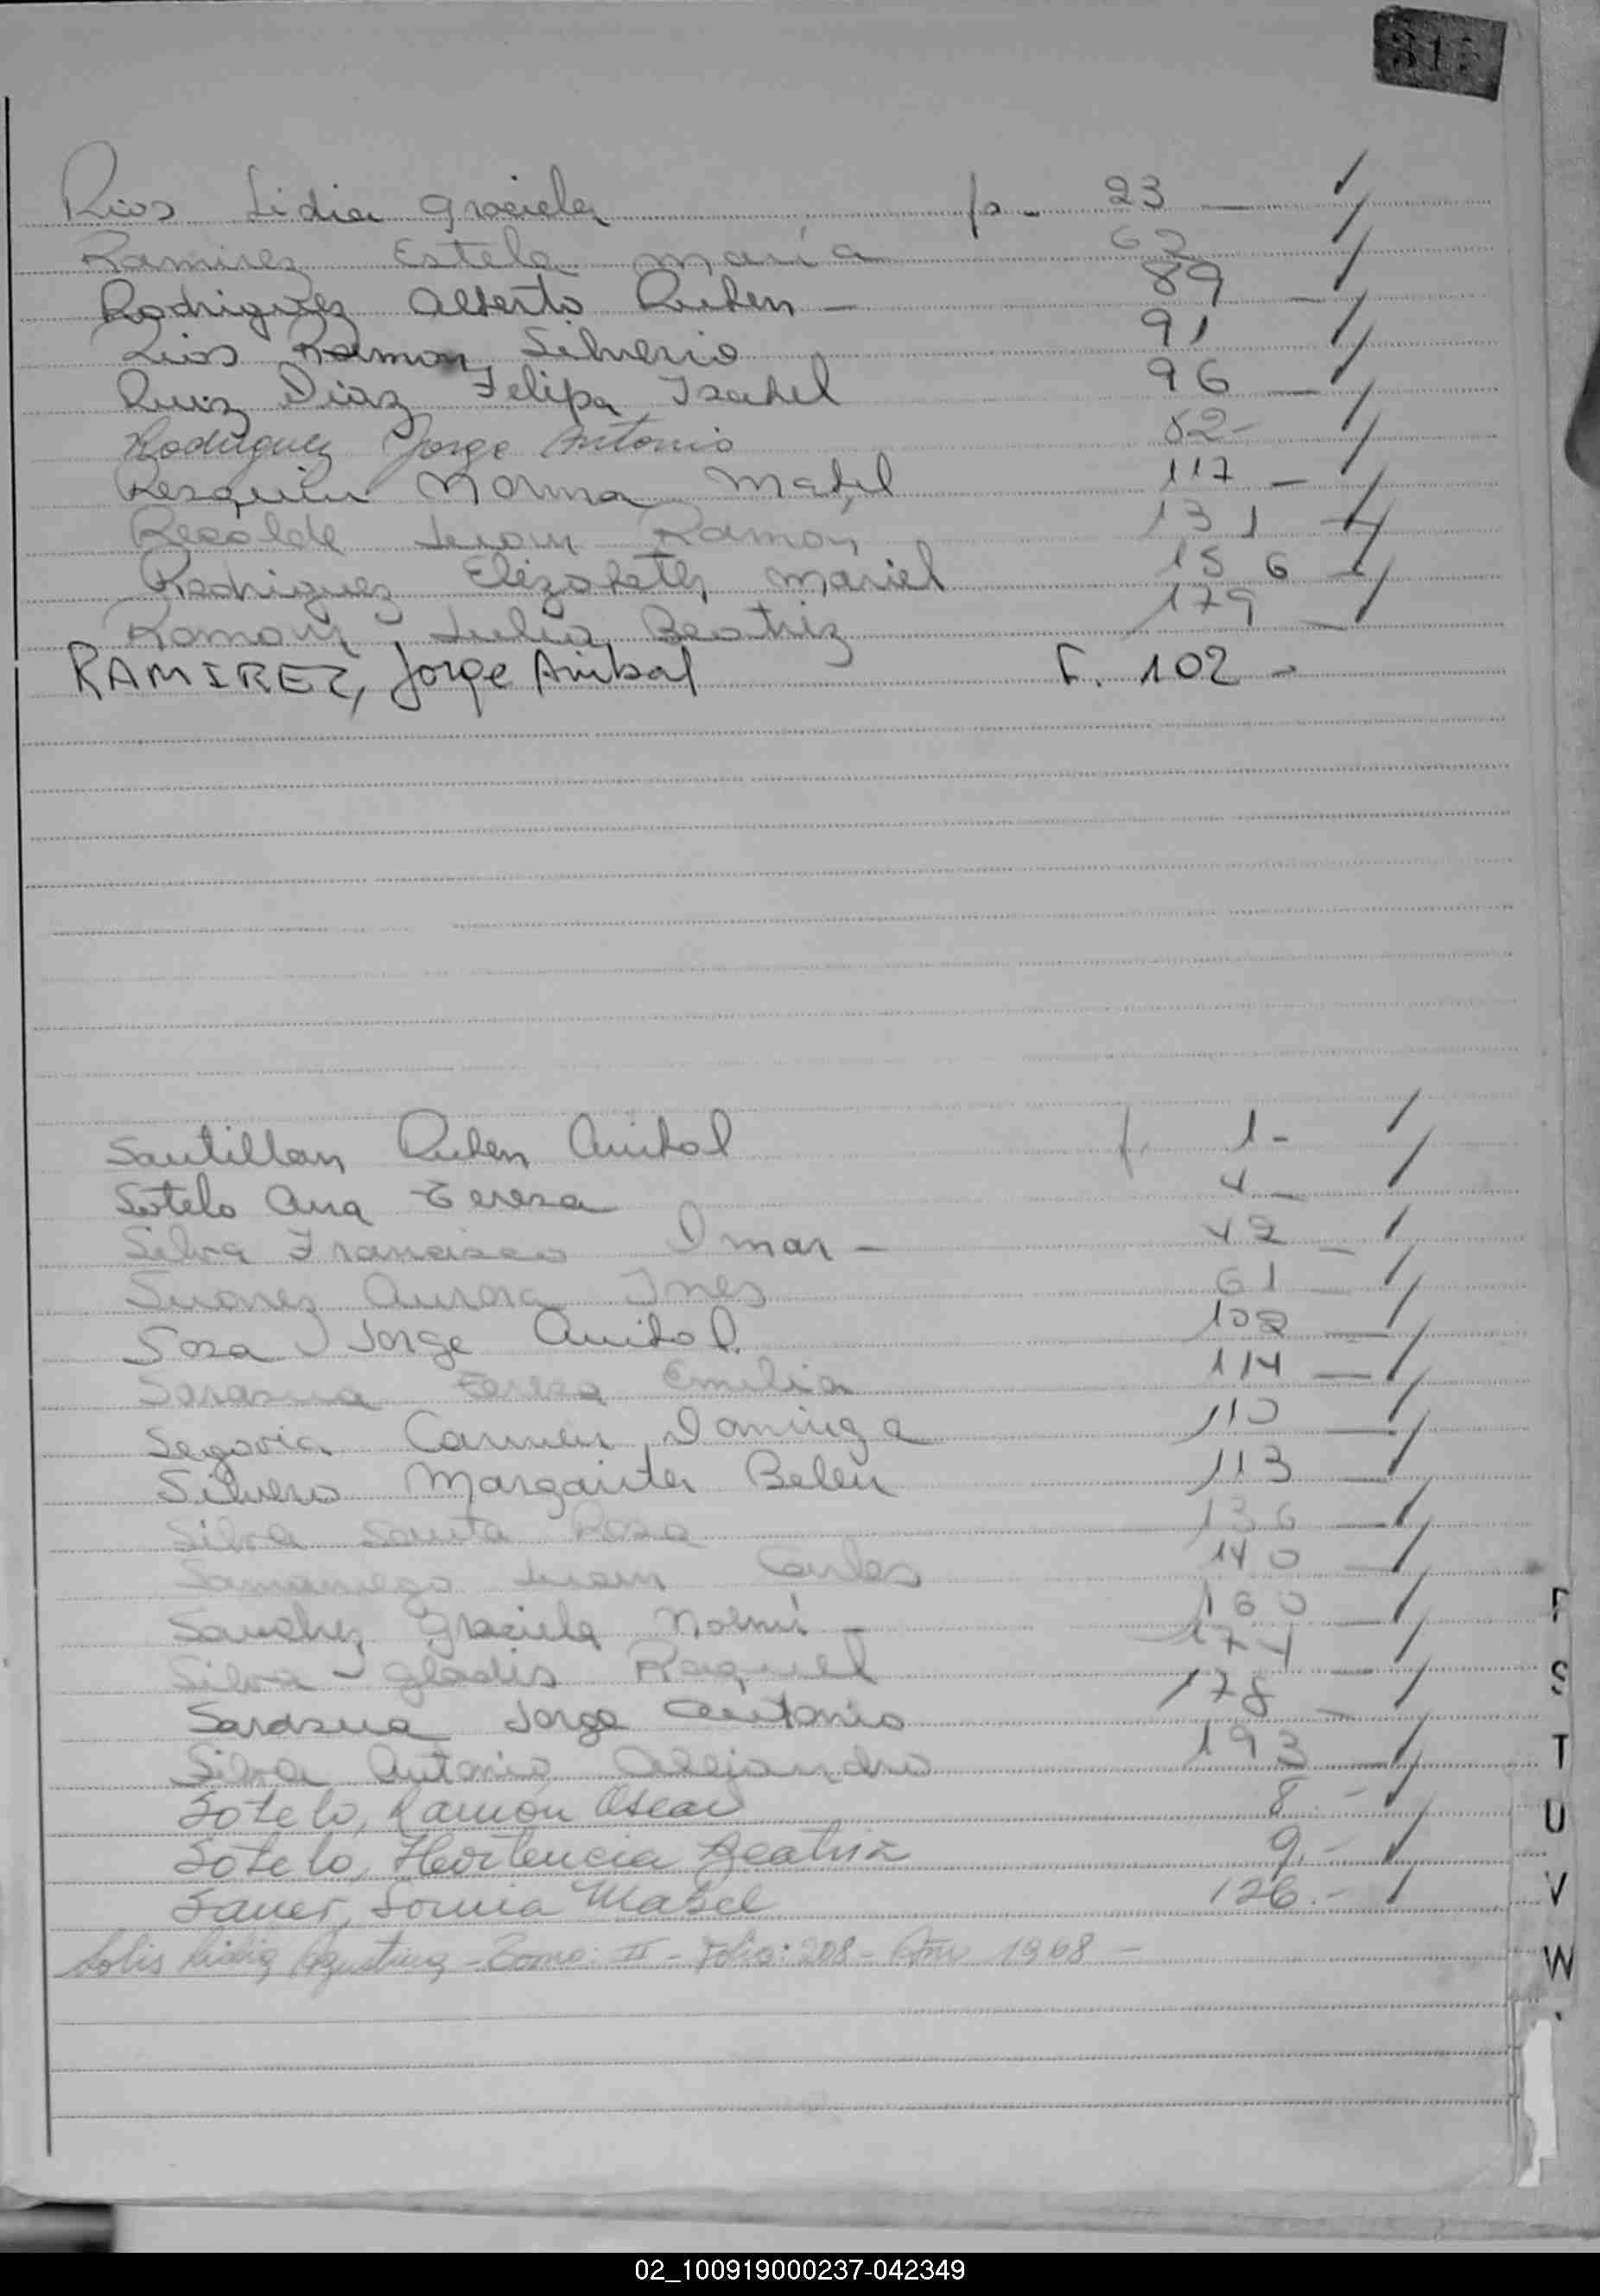 Rios Lidia Graciela fo - 23 —
Ramirez Estela maria 62
Rodriguez Alberto Ruben — 89 —
Rios Ramon Silverio 91
Ruiz Diaz Felipa Isabel 96 —
Rodriguez Jorge Antonio 82 -
Resquin Norma Mabel 117 —
Recalde Juan Ramon 131 —
Rodriguez Elizabeth Mariel 156 —
Roman Julia Beatriz 179 —
RAMIREZ, Jorge Anibal F. 102 -
Santillan Ruben Anibal f. 1 -
Sotelo Ana Teresa 4 —
Silva Francisco Omar — 42 —
Suarez Aurora Ines 61 —
Sosa Jorge Anibal. 102 —
Sarasua Teresa Emilia 114 —
Segovia Carmen Dominga 110 —
Silvero Margarita Belen 113 —
Silva Santa Rosa 136 —
Samaniego Juan Carlos 140 —
Sanchez Graciela Noemí — 160 —
Silva Gladis Raquel 174 —
Sarasua Jorge Antonio 178 —
Silva Antonio Alejandro 193 —
Sotelo, Ramón Oscar 8. -
Sotelo, Hortencia Beatriz 9. -
Sauer, Sonia Mabel 126. -
Solis Lidia Agustina - Tomo: II - Folio: 208 - Año 1968 —
F
S
T
U
V
W
02_100919000237-042349